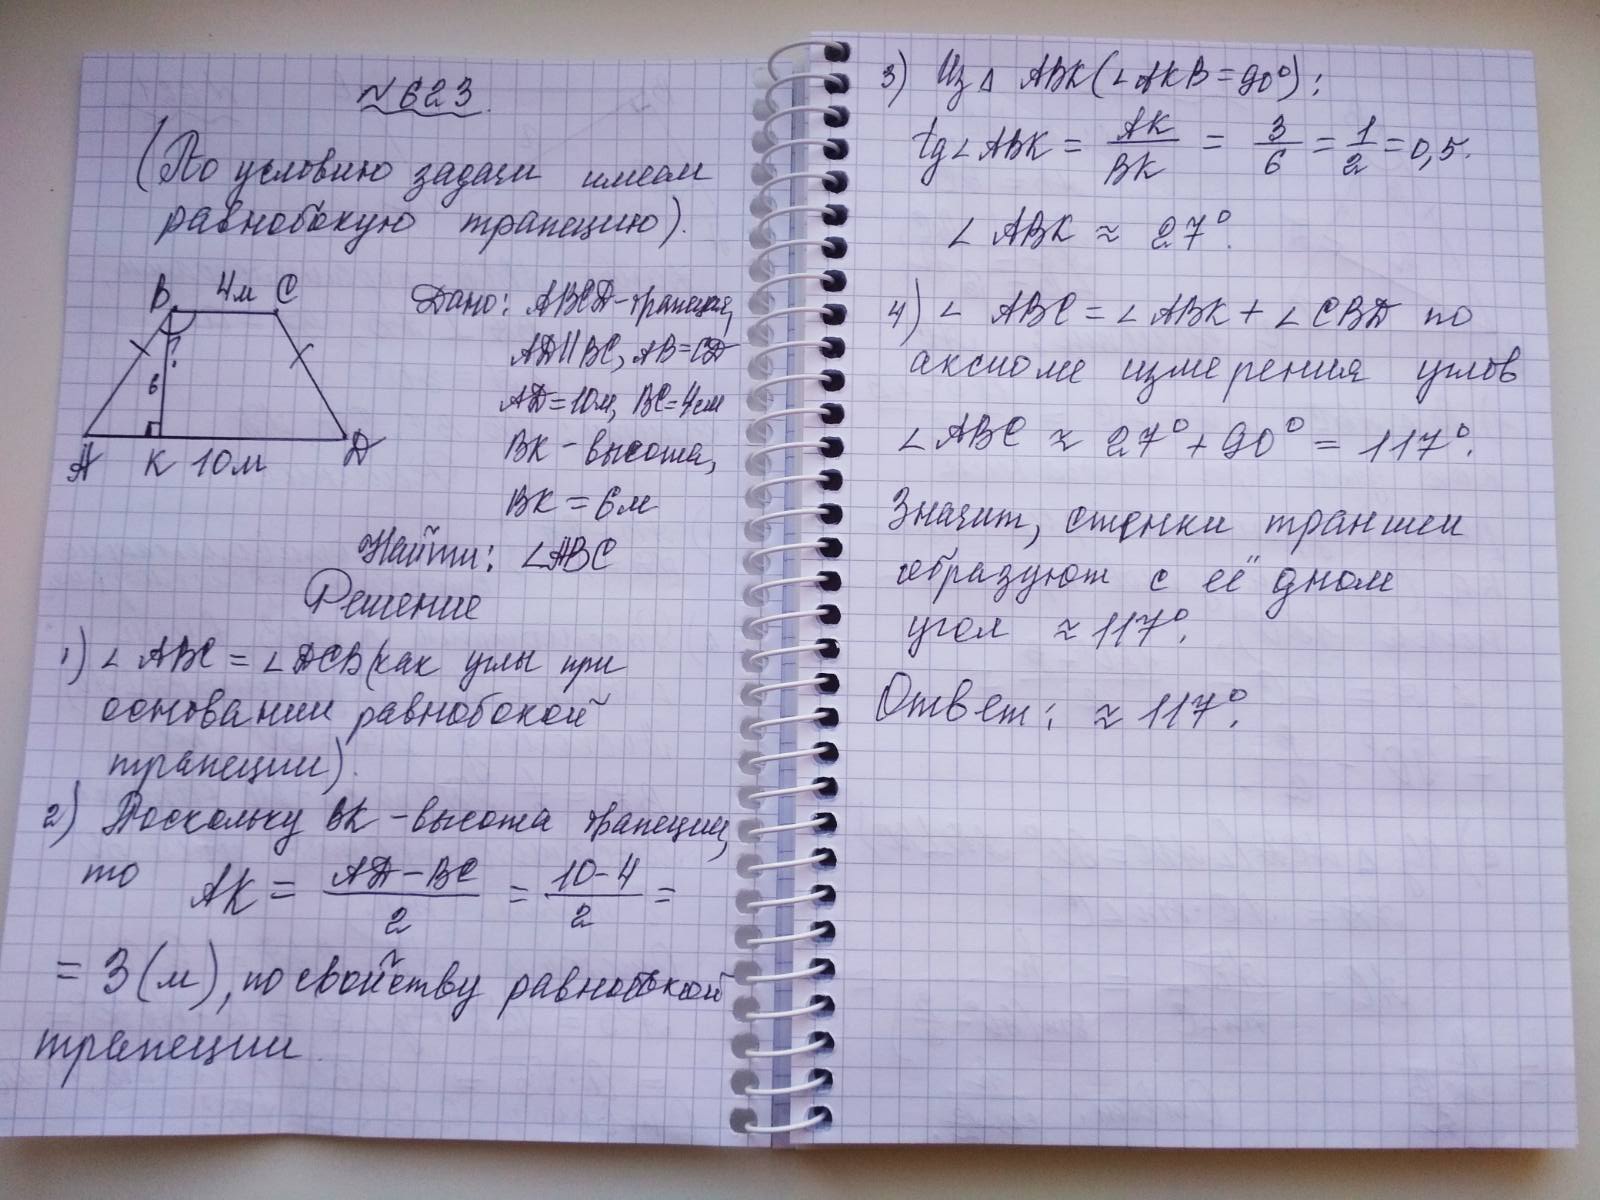 №623.
(По условию задачи имеем
равнобокую трапецию).
B 4м C
?
6
A K 10м D
Дано: ABCD-трапеция,
AD||BC, AB=CD
AD=10м, BC=4см
BK-высота,
BK=6м
Найти: ∠ABC
Решение
1) ∠ABC=∠DCB(как углы при
основании равнобокой
трапеции).
2) Поскольку BK-высота трапеции,
то AK = (AD-BC)/2 = (10-4)/2 =
= 3(м), по свойству равнобокой
трапеции.
3) Из △ABK(∠AKB=90°):
tg∠ABK = AK/BK = 3/6 = 1/2 = 0,5.
∠ABK ≈ 27°.
4) ∠ABC=∠ABK+∠CBD по
аксиоме измерения углов
∠ABC ≈ 27°+90° = 117°.
Значит, стенки траншеи
образуют с её дном
угол ≈117°.
Ответ: ≈117°.